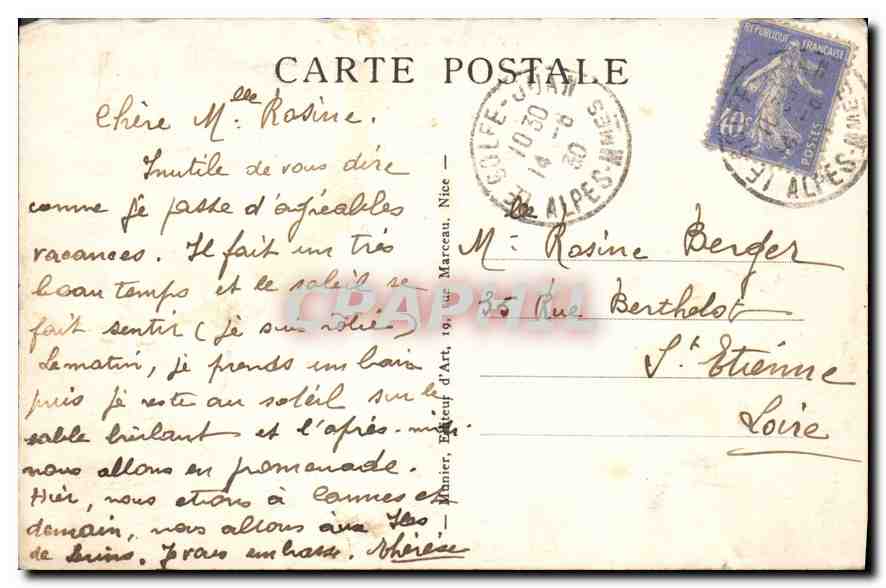 CARTE POSTALE
REPUBLIQUE FRANÇAISE
40c
POSTES
LE GOLFE-JUAN
10 30
14 - 8
30
ALPES-MMES
LE
ALPES-MMES
Chère Mlle Rosine.
Inutile de vous dire
comme je passe d'agréables
vacances. Il fait un très
beau temps et le soleil se
fait sentir (je suis rôtie)
Le matin, je prends un bain
puis je reste au soleil sur le
sable brûlant et l'après-midi
nous allons en promenade.
Hier, nous étions à Cannes et
demain, nous allons aux Iles
de Lerins. Je vous embrasse. Thérèse
— Munier, Editeur d'Art, 19, rue Marceau, Nice —
Mlle Rosine Berger
35 Rue Berthelot
St Etienne
Loire
CPAPHIL